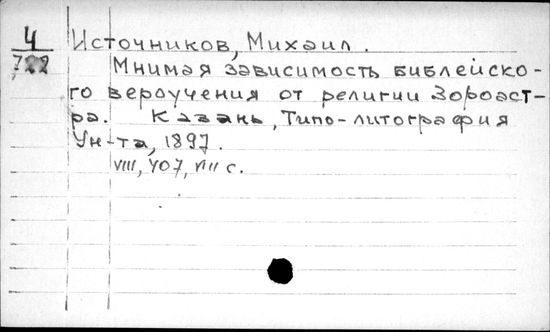 4
722
Источников, Михаил.
Мнимая зависимость библейско-
го вероучения от религии Зороаст-
ра. Казань, Типо-литография
Ун-та, 1897.
VIII, 407, VIII с.